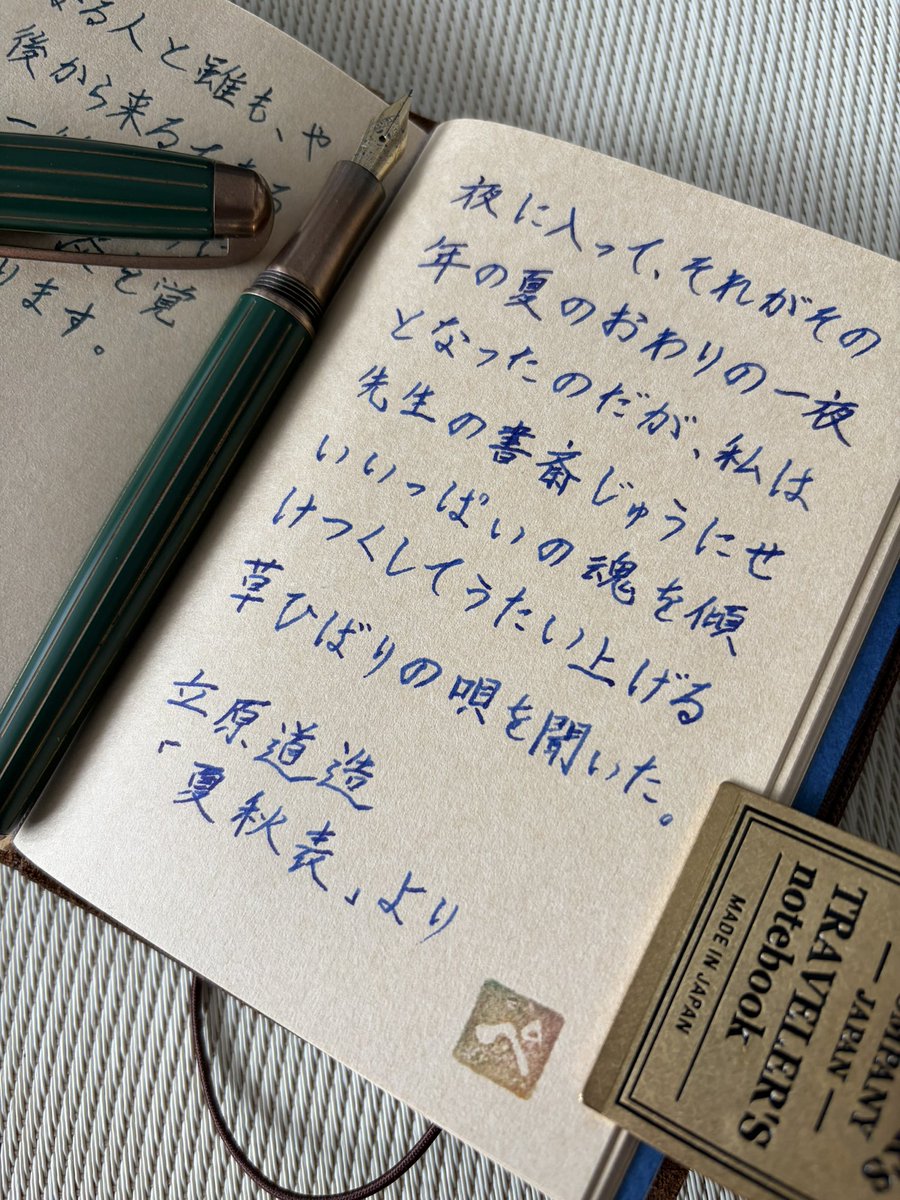 る人と雖も、や
後から来る
を覚
ます。
夜に入って、それがその
年の夏のおわりの一夜
となったのだが、私は
先生の書斎じゅうにせ
いいっぱいの魂を傾
けつくしてうたい上げる
草ひばりの唄を聞いた。
立原道造
「夏秋表」より
COMPANY
— JAPAN —
TRAVELER'S
notebook
MADE IN JAPAN